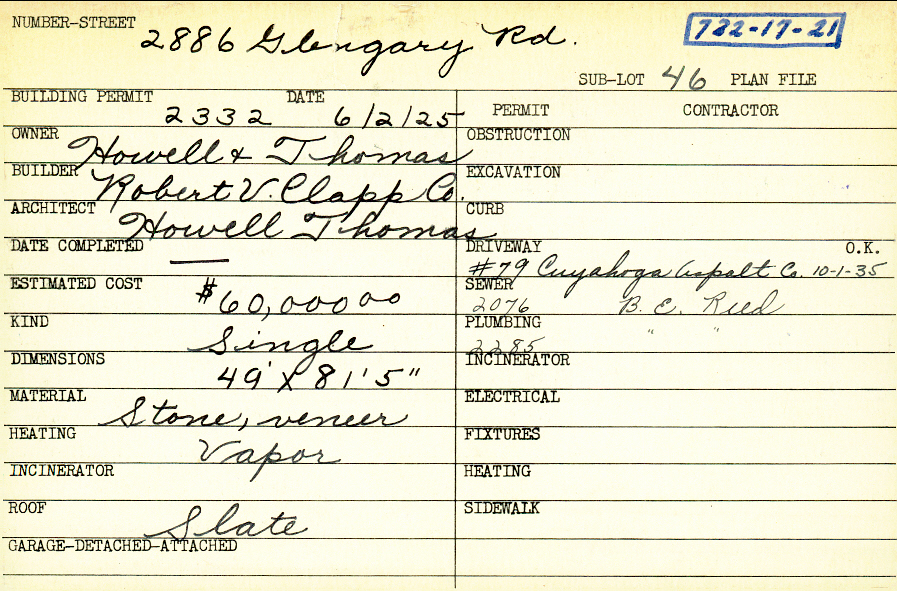 NUMBER-STREET 2886 Glengary Rd. 722-17-21
SUB-LOT 46 PLAN FILE
BUILDING PERMIT 2332 DATE 6/2/25
OWNER Howell & Thomas
BUILDER Robert V. Clapp Co.
ARCHITECT Howell Thomas
DATE COMPLETED —
ESTIMATED COST $60,000 00
KIND Single
DIMENSIONS 49' X 81'5"
MATERIAL Stone, veneer
HEATING Vapor
INCINERATOR
ROOF Slate
GARAGE-DETACHED-ATTACHED
PERMIT CONTRACTOR
OBSTRUCTION
EXCAVATION
CURB
DRIVEWAY O.K.
#79 Cuyahoga Aspalt Co. 10-1-35
SEWER
2076 B. E. Reed
PLUMBING
2285 " "
INCINERATOR
ELECTRICAL
FIXTURES
HEATING
SIDEWALK